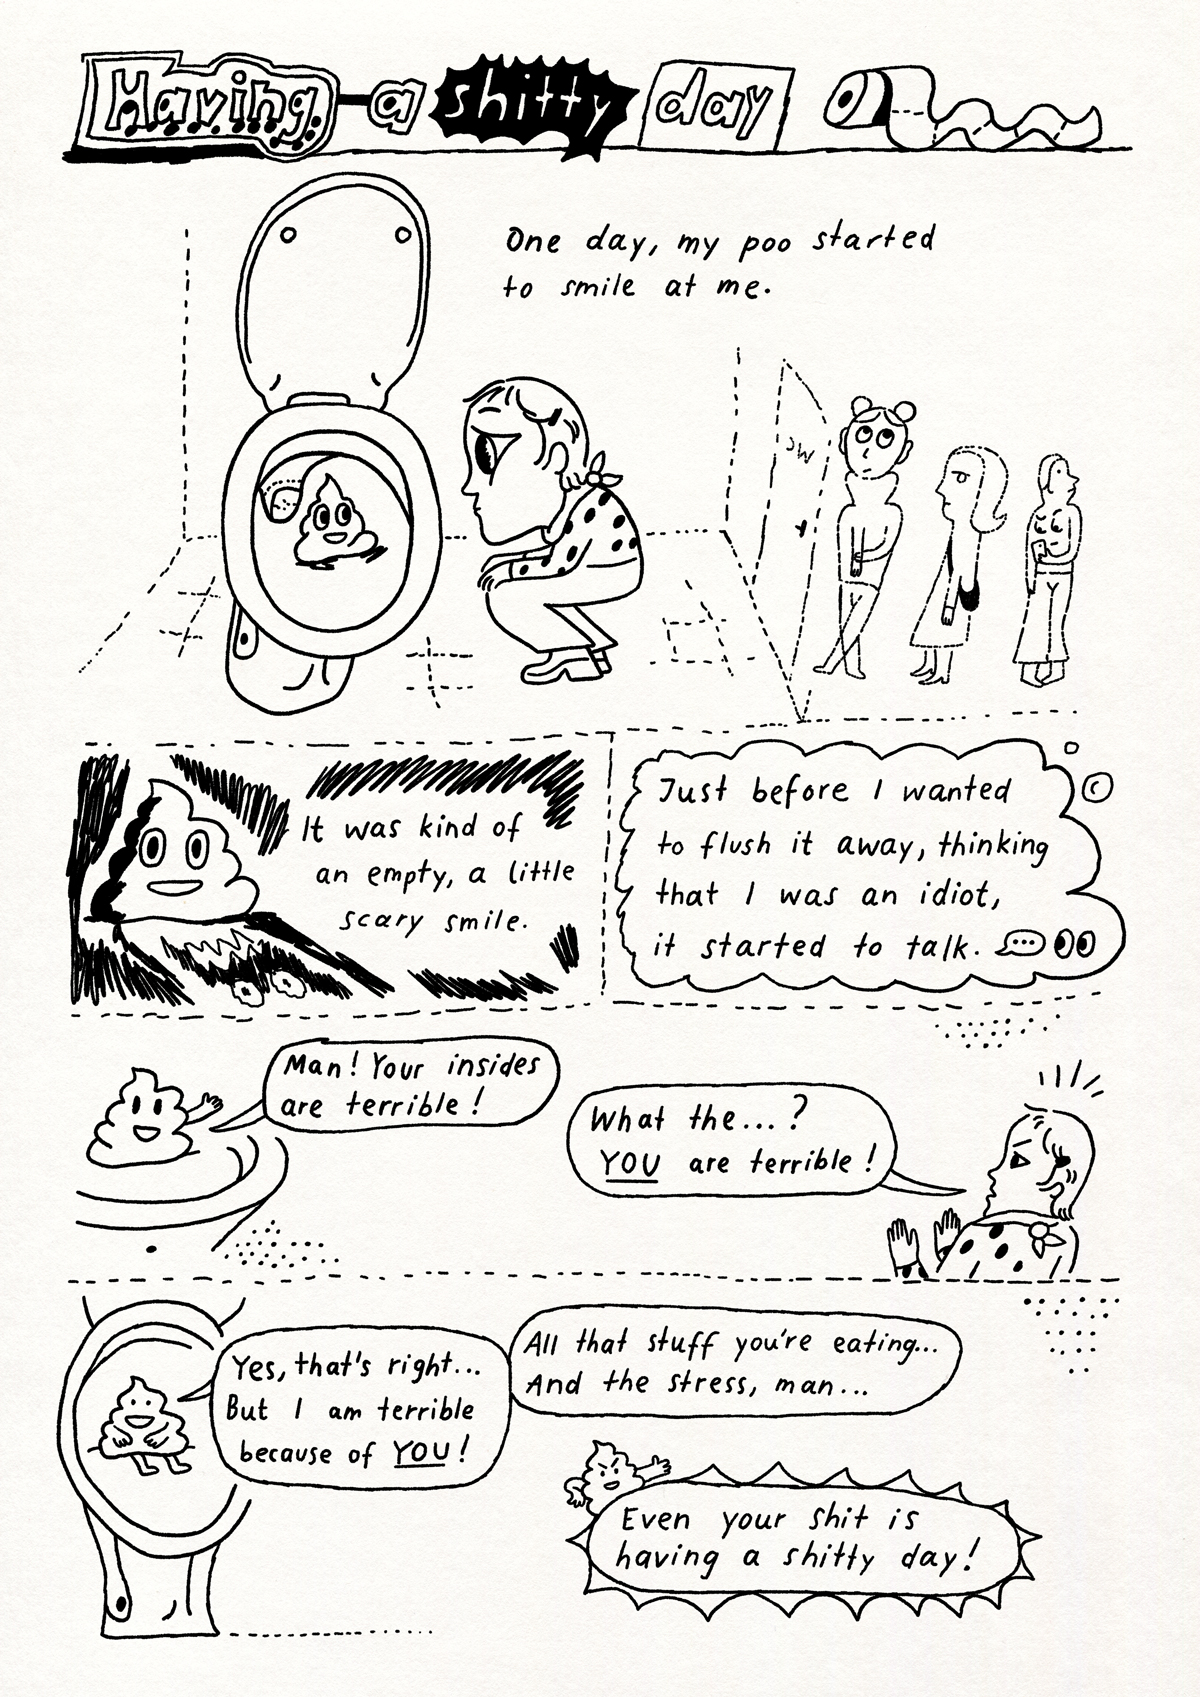 Having a shitty day
One day, my poo started
to smile at me.
It was kind of
an empty, a little
scary smile.
Just before I wanted
to flush it away, thinking
that I was an idiot,
it started to talk.
Man! Your insides
are terrible!
What the...?
YOU are terrible!
Yes, that's right...
But I am terrible
because of YOU!
All that stuff you're eating...
And the stress, man...
Even your shit is
having a shitty day!